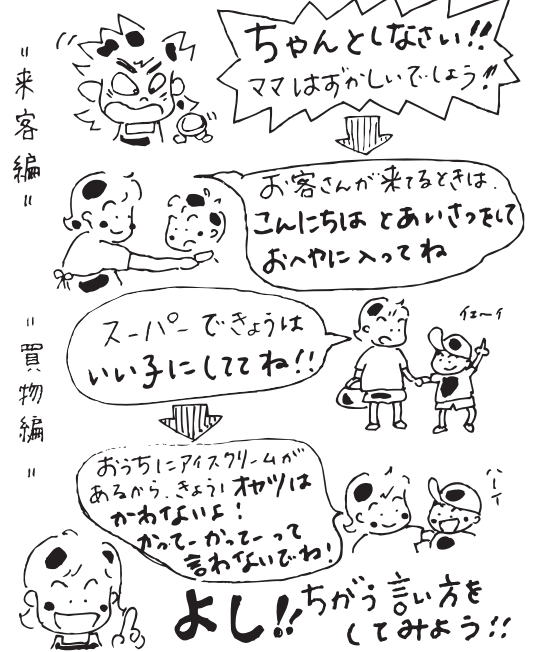 "来客編"
ちゃんとしなさい!!
ママはずかしいでしょう!!
お客さんが来てるときは、
こんにちは とあいさつをして
おへやに入ってね
"買物編"
スーパーできょうは
いい子にしててね!!
イェ〜イ
おうちにアイスクリームが
あるから、きょうはオヤツは
かわないよ!
かってーかってーって
言わないでね!
ハーイ
よし!!ちがう言い方を
してみよう!!